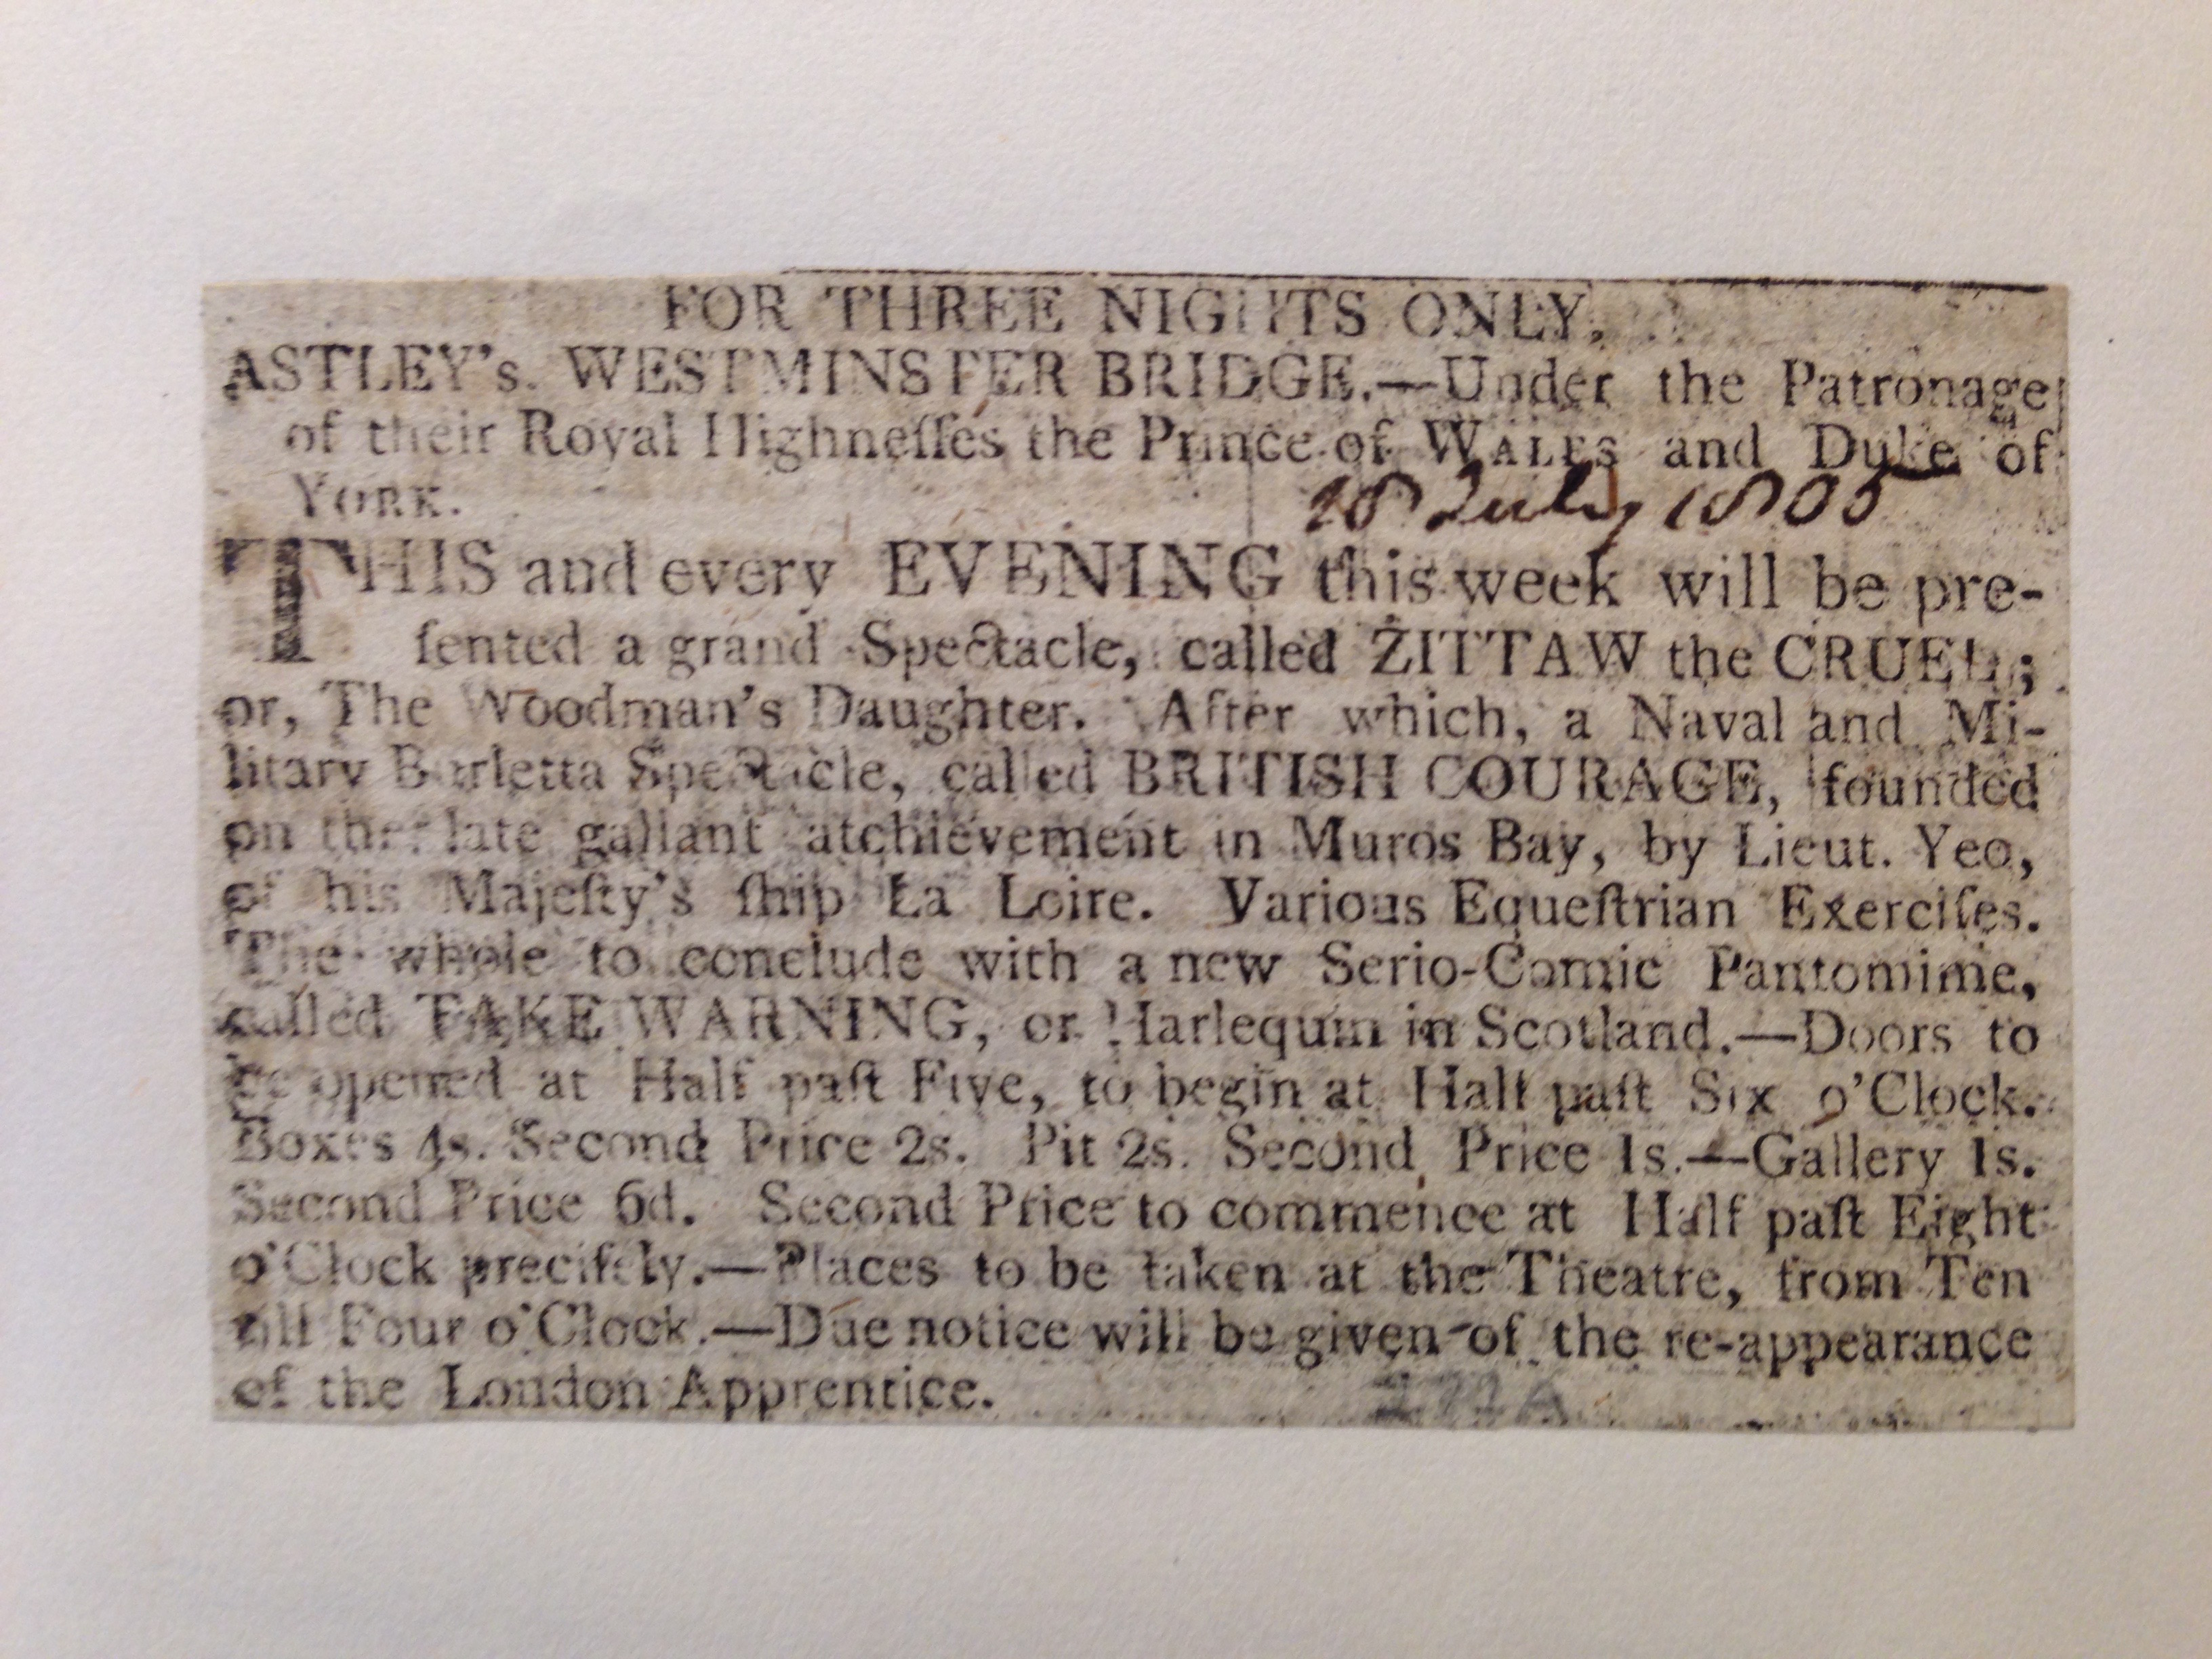 FOR THREE NIGHTS ONLY.
ASTLEY's. WESTMINSTER BRIDGE.—Under the Patronage
of their Royal Highneſſes the Prince of WALES and Duke of
YORK.
18 July 1805
THIS and every EVENING this week will be pre-
ſented a grand Spectacle, called ZITTAW the CRUEL;
or, The Woodman's Daughter. After which, a Naval and Mi-
litary Burletta Spectacle, called BRITISH COURAGE, founded
on the late gallant atchievement in Muros Bay, by Lieut. Yeo,
of his Majeſty's ſhip La Loire. Various Equeſtrian Exerciſes.
The whole to conclude with a new Serio-Comic Pantomime,
called TAKE WARNING, or Harlequin in Scotland.—Doors to
be opened at Half paſt Five, to begin at Half paſt Six o'Clock.
Boxes 4s. Second Price 2s. Pit 2s. Second Price 1s.—Gallery 1s.
Second Price 6d. Second Price to commence at Half paſt Eight
o'Clock preciſely.—Places to be taken at the Theatre, from Ten
till Four o'Clock.—Due notice will be given of the re-appearance
of the London Apprentice.